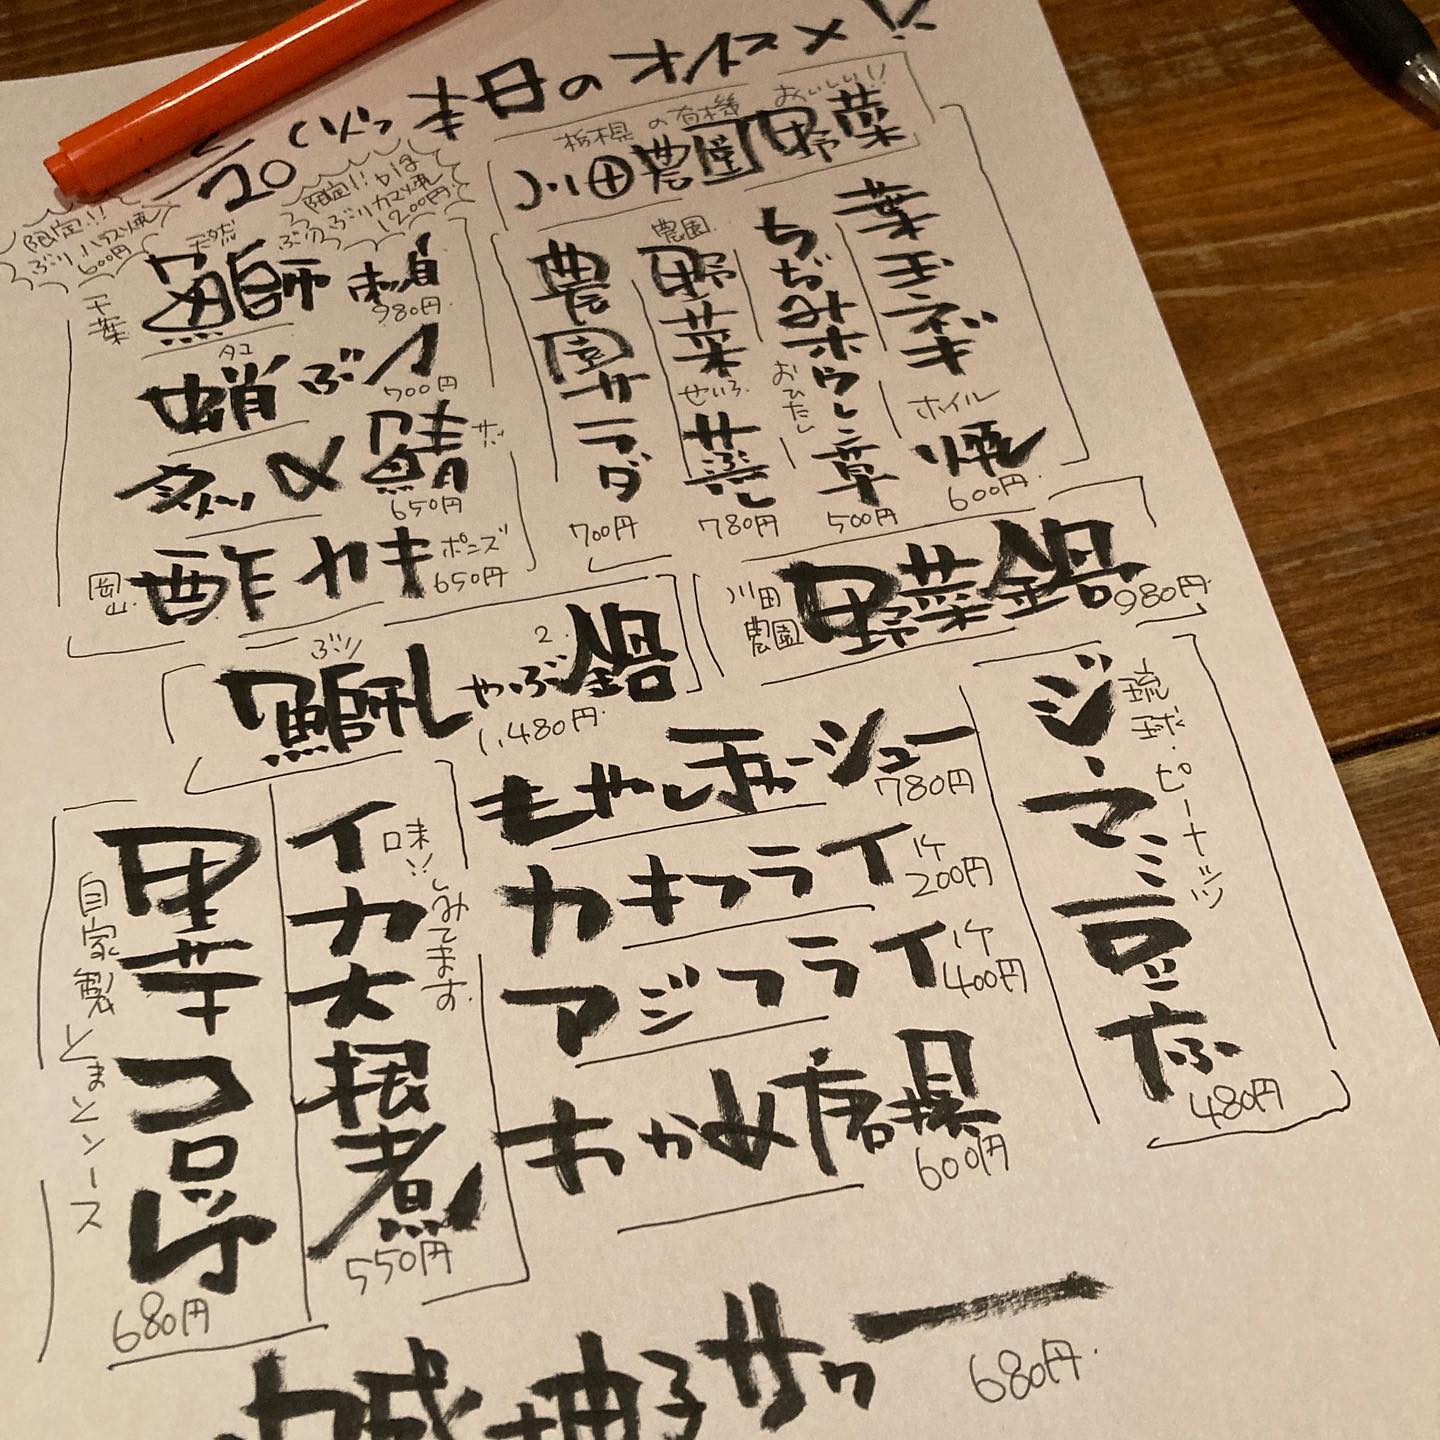 本日のオススメ!!
20
限定!!
ぶりハラス焼
600円
限定!!
ぶりカマ焼
1200円
天然
ぶり
千葉
鰤刺身
980円
タコ
蛸ぶつ
700円
炙〆鯖
サバ
650円
岡山
酢ガキ
ポン酢
650円
栃木県の有機
おいしい!!
川田農園野菜
葉玉ネギ
ホイル
焼
600円
ちぢみホウレン草
おひたし
500円
農園
野菜
せいろ
蒸し
780円
農園サラダ
700円
川田
農園
野菜鍋
980円
ぶり
鰤しゃぶ鍋
1,480円
琉球・ピーナッツ
ジーマミ豆ふ
480円
もやし
シュー
780円
カキフライ
1ケ
200円
アジフライ
1ケ
400円
わかめ唐揚
600円
イカ大根煮
味!!しみてます
550円
里芋コロッケ
自家製とまとソース
680円
柚子サワー
680円